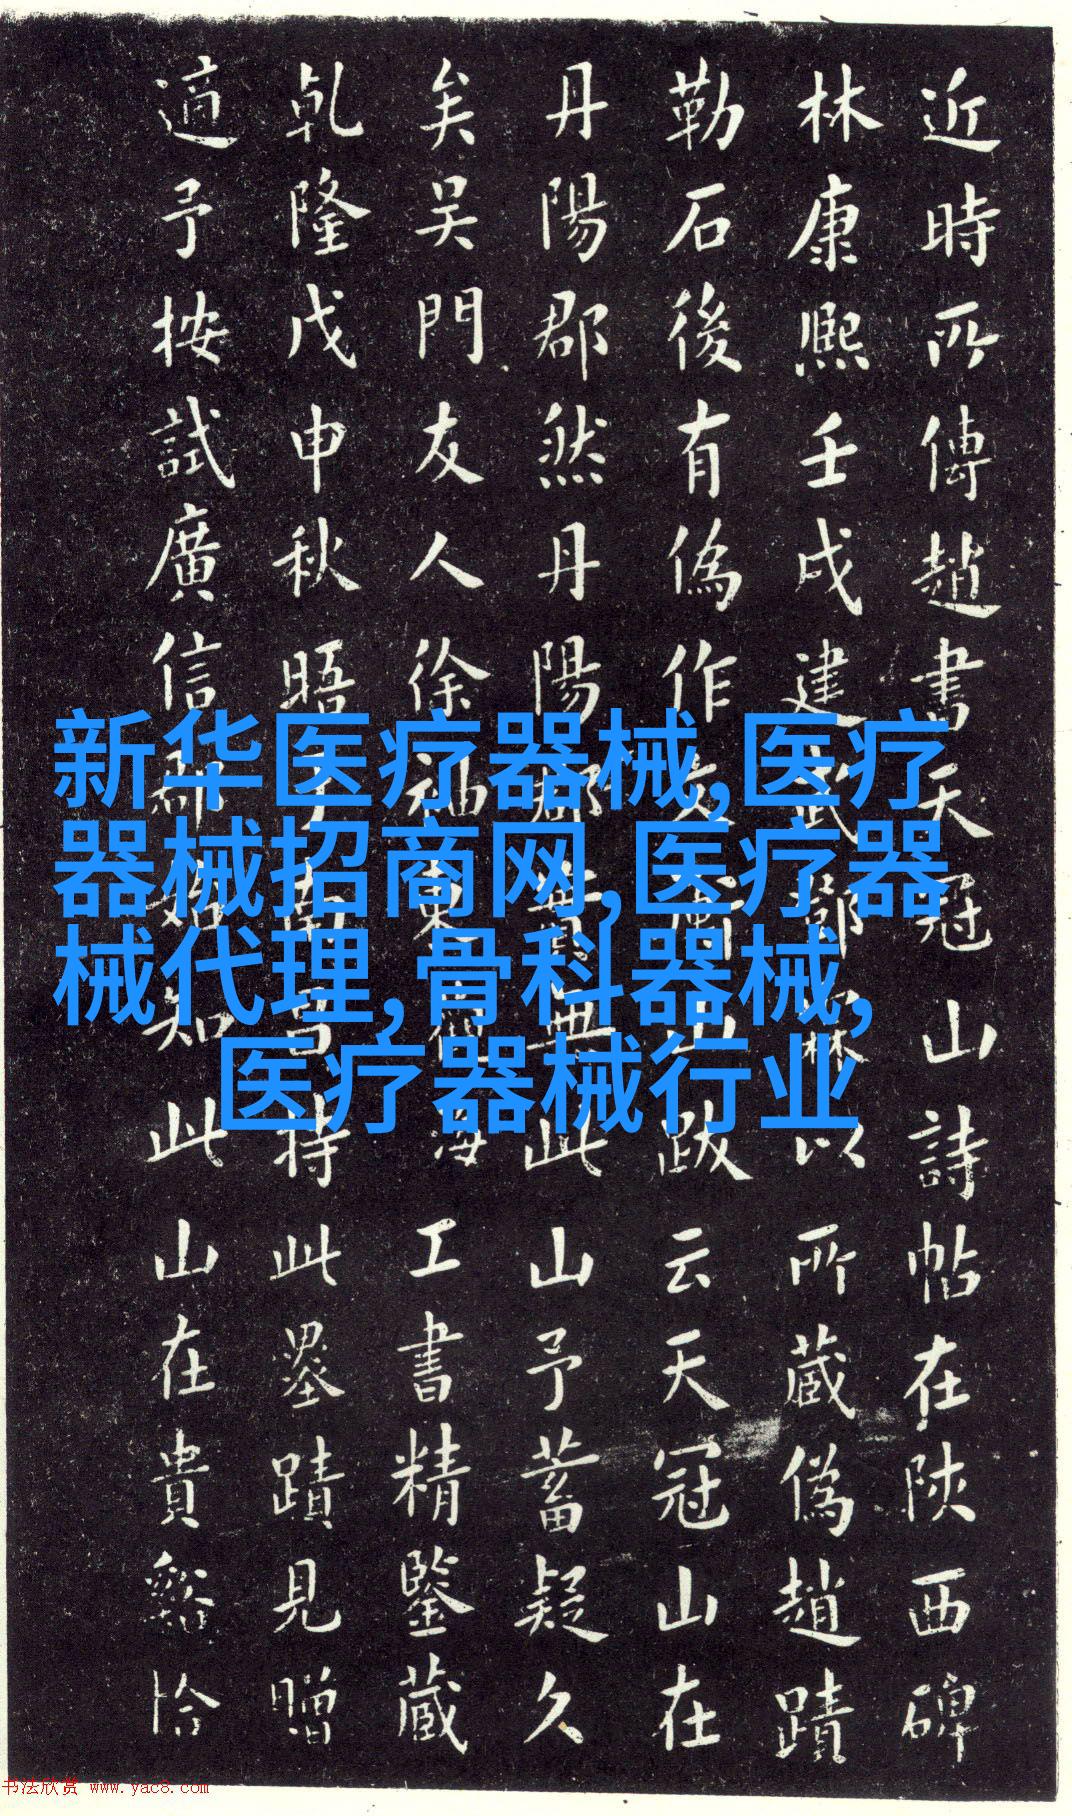 近時所傳趙書天冠山詩帖在陝西碑
林康熙壬戌建武鄧霖以所蔵偽趙蹟
勒石後有偽作山跋云天冠山在
丹陽郡然丹陽郡無此山予蓄疑久
矣吴門友人徐袖東海工書精鑒蔵
乹隆戊申秋晤于南昌持此墨蹟見贈
適予按試廣信郡始知此山在貴谿恰
新华医疗器械,医疗
器械招商网,医疗器
械代理,骨科器械,
医疗器械行业
书法欣赏 www.yac8.com